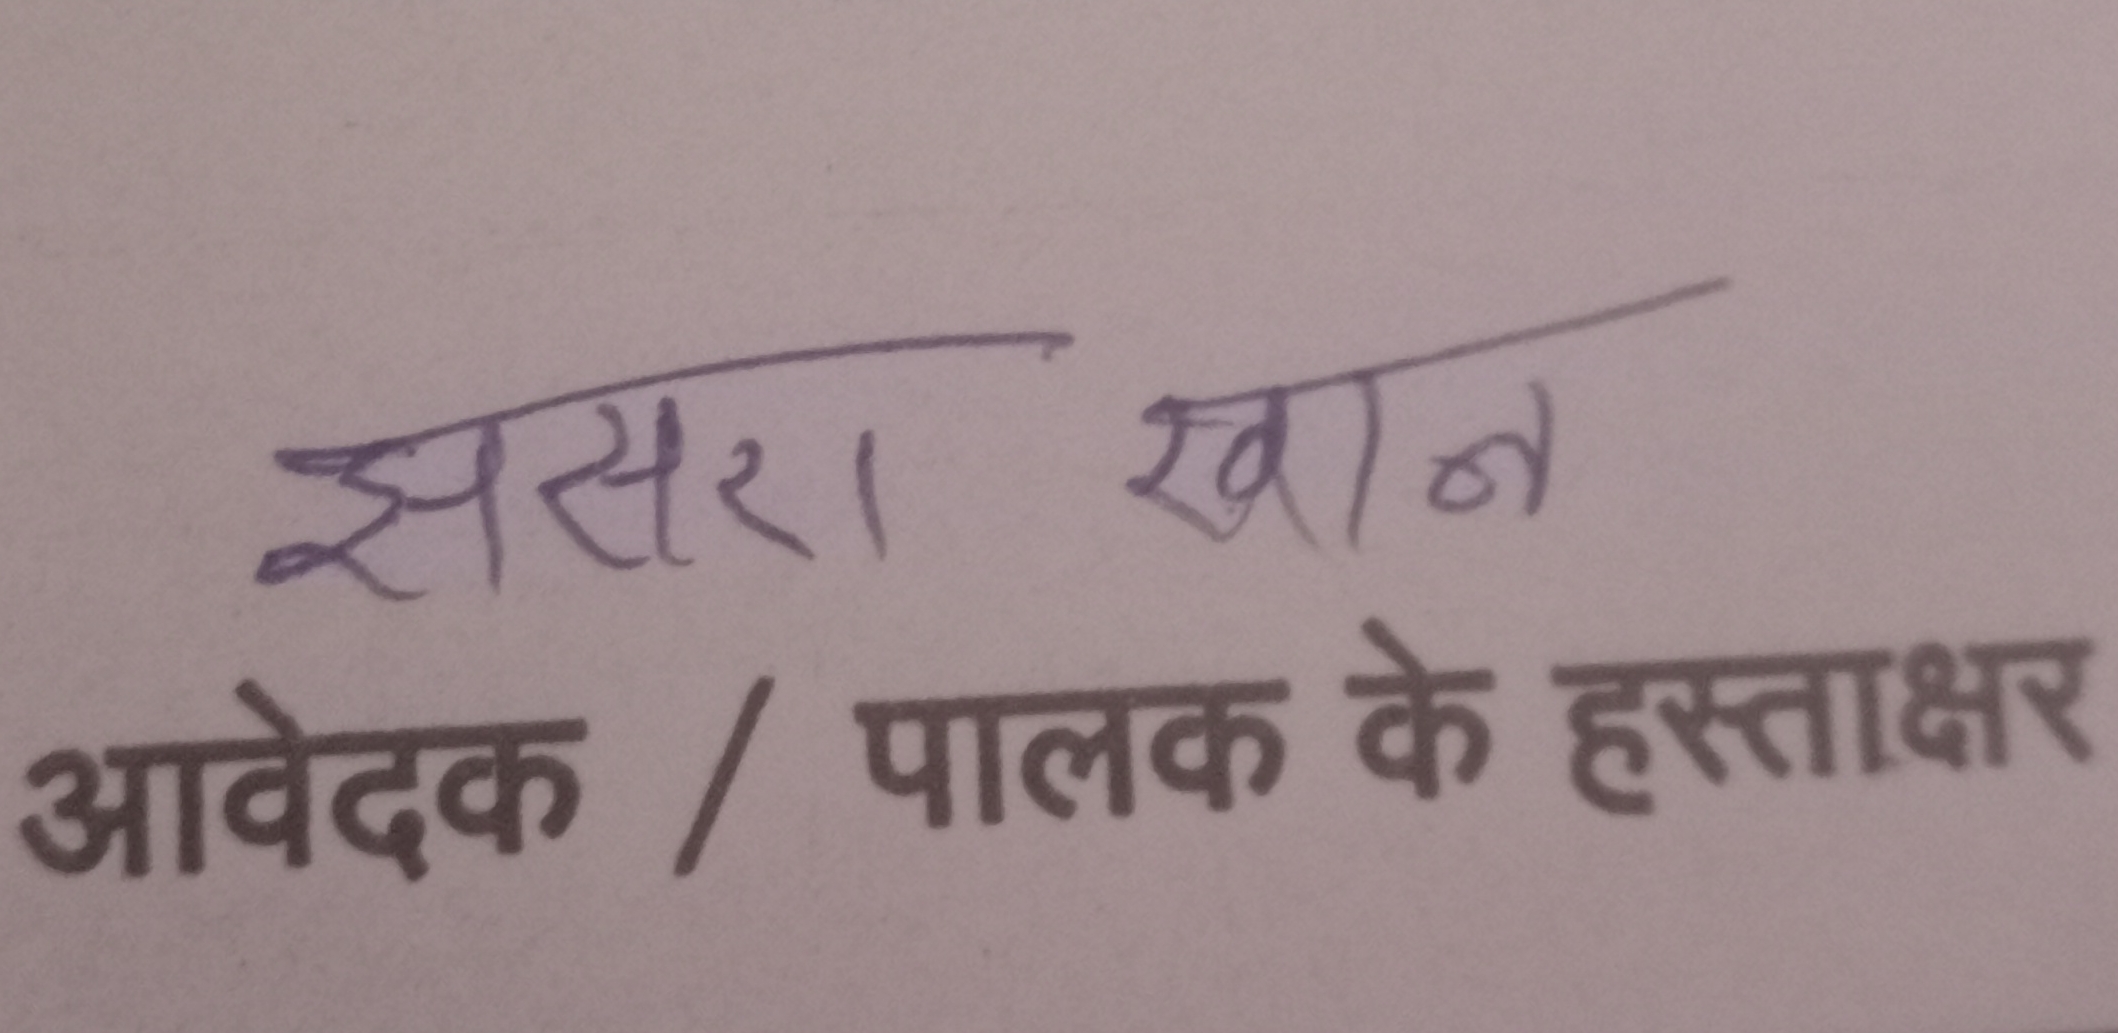 झसरा खान
आवेदक / पालक के हस्ताक्षर